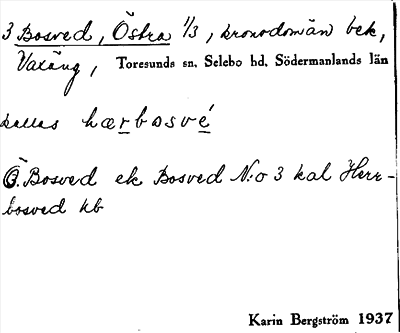 3 Bosved, Östra 1/3, kronodomän bek,
Valäng, Toresunds sn, Selebo hd, Södermanlands län
kallas hærbosvé
Ö. Bosved ek Bosved N:o 3 kal Herr-
bosved kb
Karin Bergström 1937